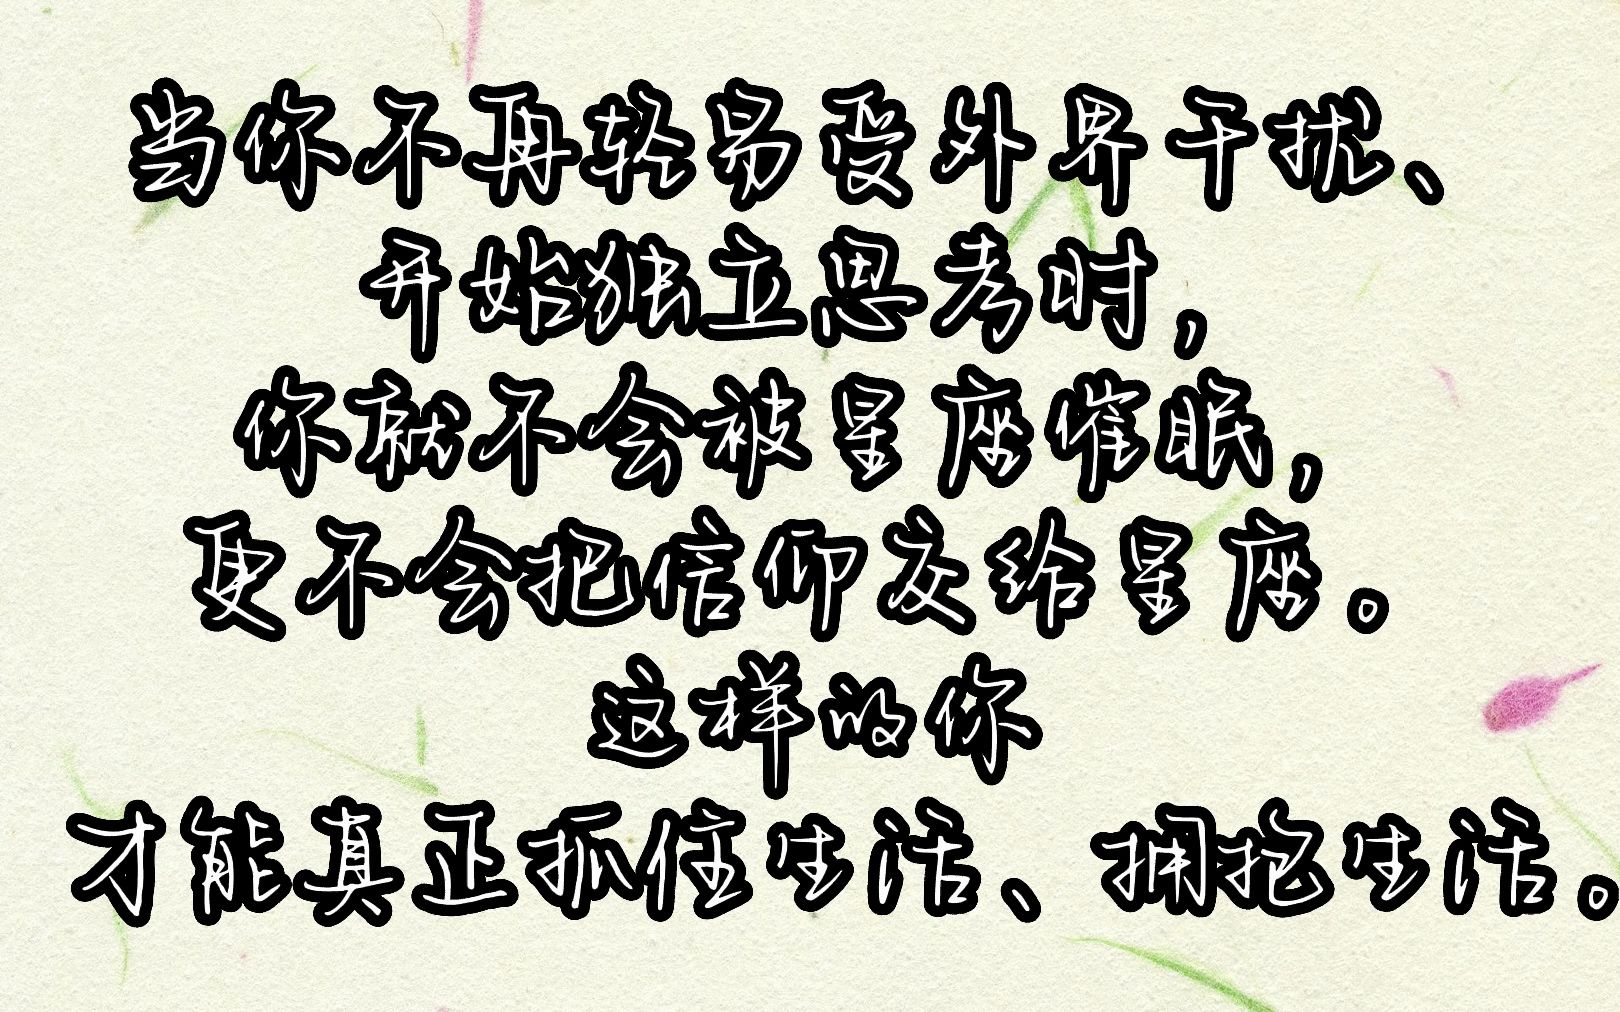 当你不再轻易受外界干扰、
开始独立思考时，
你就不会被星座催眠，
更不会把信仰交给星座。
这样的你
才能真正抓住生活、拥抱生活。